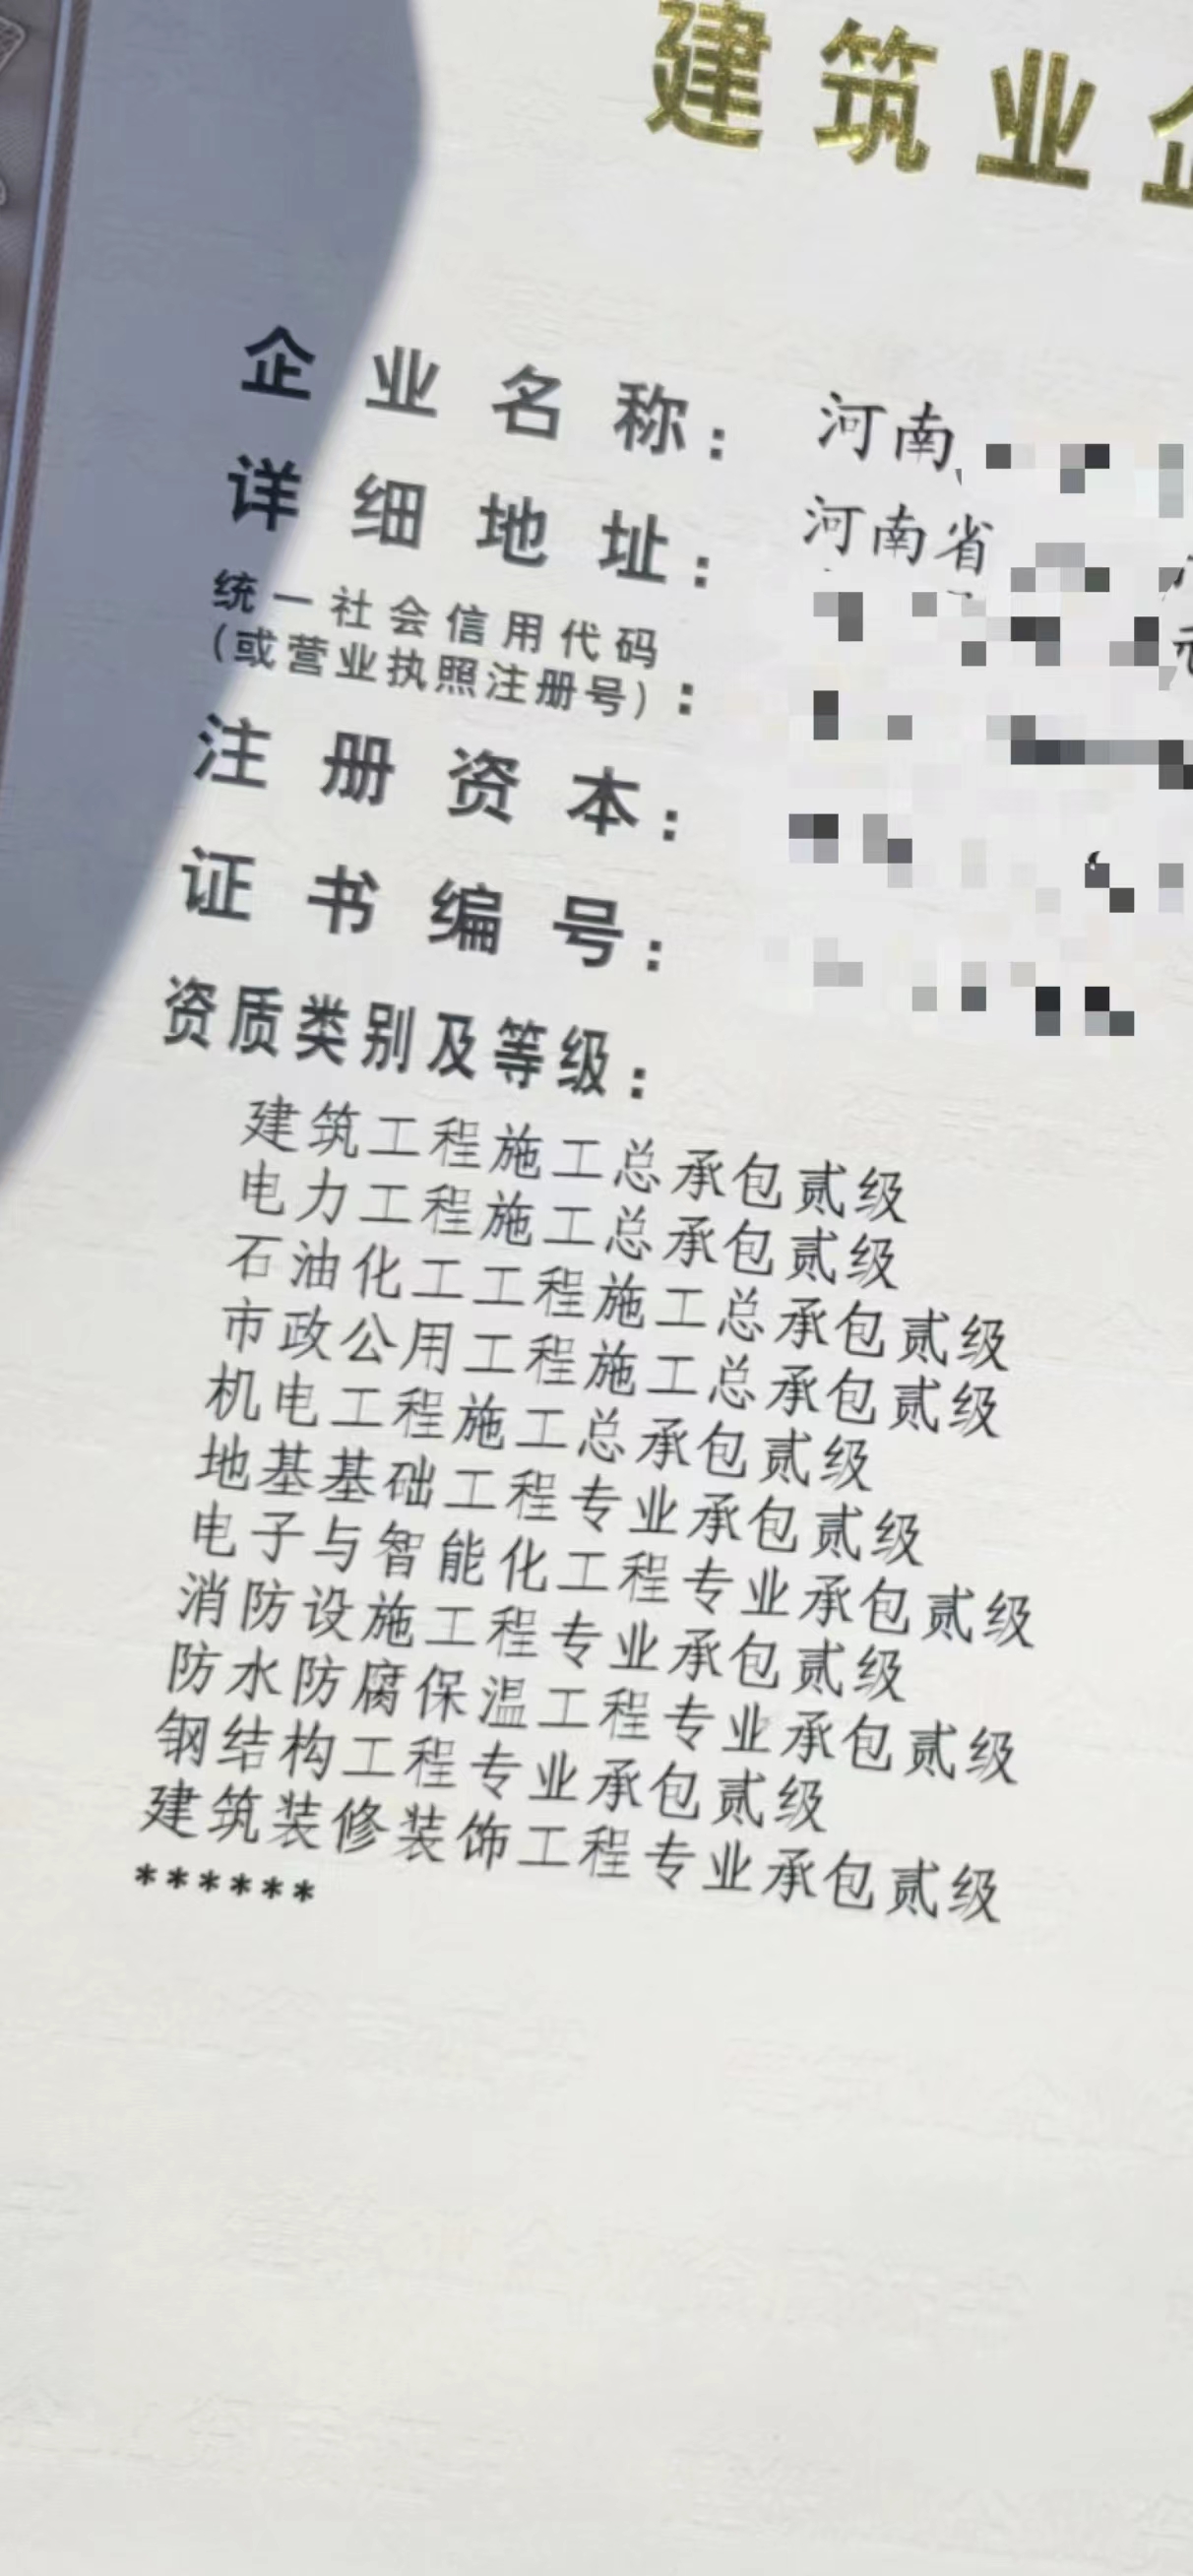 建筑业企
企业名称：河南
详细地址：河南省
统一社会信用代码
(或营业执照注册号)：
注册资本：
证书编号：
资质类别及等级：
建筑工程施工总承包贰级
电力工程施工总承包贰级
石油化工工程施工总承包贰级
市政公用工程施工总承包贰级
机电工程施工总承包贰级
地基基础工程专业承包贰级
电子与智能化工程专业承包贰级
消防设施工程专业承包贰级
防水防腐保温工程专业承包贰级
钢结构工程专业承包贰级
建筑装修装饰工程专业承包贰级
******